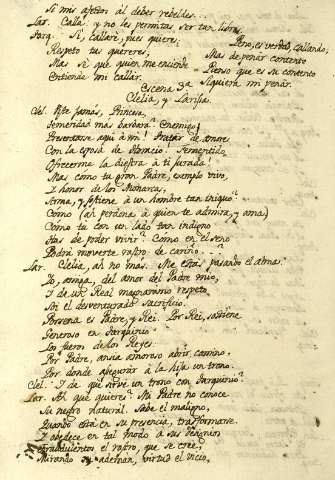 Si mis afectos al deber rebeldes...
Lar. Calla! y no les permitas ser tan libres.
Tarq. Si, callaré, pues quieres;
Pero, es verdad, callando,
Respeto tus quereres;
Mas de penar contento
Mas sé que quien me enciende
Pienso que es su contento
Entiende mi callar.
Siquiera mi penar.
Escena 3a
Clelia, y Larisa.
Clel. Viste jamas, Princesa,
Temeridad mas barbara? Enemigo!
Presentarse aqui à mi! Tratar de amores
Con la esposa de Horacio! Fementido
Ofrecerme la diestra à ti jurada!
Mas como tu gran Padre, exemplo vivo,
I honor de los Monarcas,
Arma, y sostiene à un hombre tan iniquo?
Como (ah perdona à quien te admira, y ama)
Como tu con un lado tan indigno
Has de poder vivir? Como en el seno
Podrá moverte rastro de cariño?
Lar. Clelia, ah no mas. Me estás pasando el alma.
Yo, amiga, del amor del Padre mio,
I de un Real magnanimo respeto
Soi el desventurado sacrificio.
Porsena es Padre, y Rei. Por Rei, sostiene
Generoso en Tarquinio
Los fueros de los Reyes:
Por Padre, ansia amoroso abrir camino,
Por donde asegurar à la hija un trono.
Clel. I de que sirve un trono con Tarquinio?
Lar. Ah que quieres? Mi Padre no conoce
Su negro natural. Sabe el maligno,
Quando está en su presencia, transformarse.
I obedece en tal modo à sus designios
el rostro, que se cree,
Mirando su ademan, virtud el vicio,